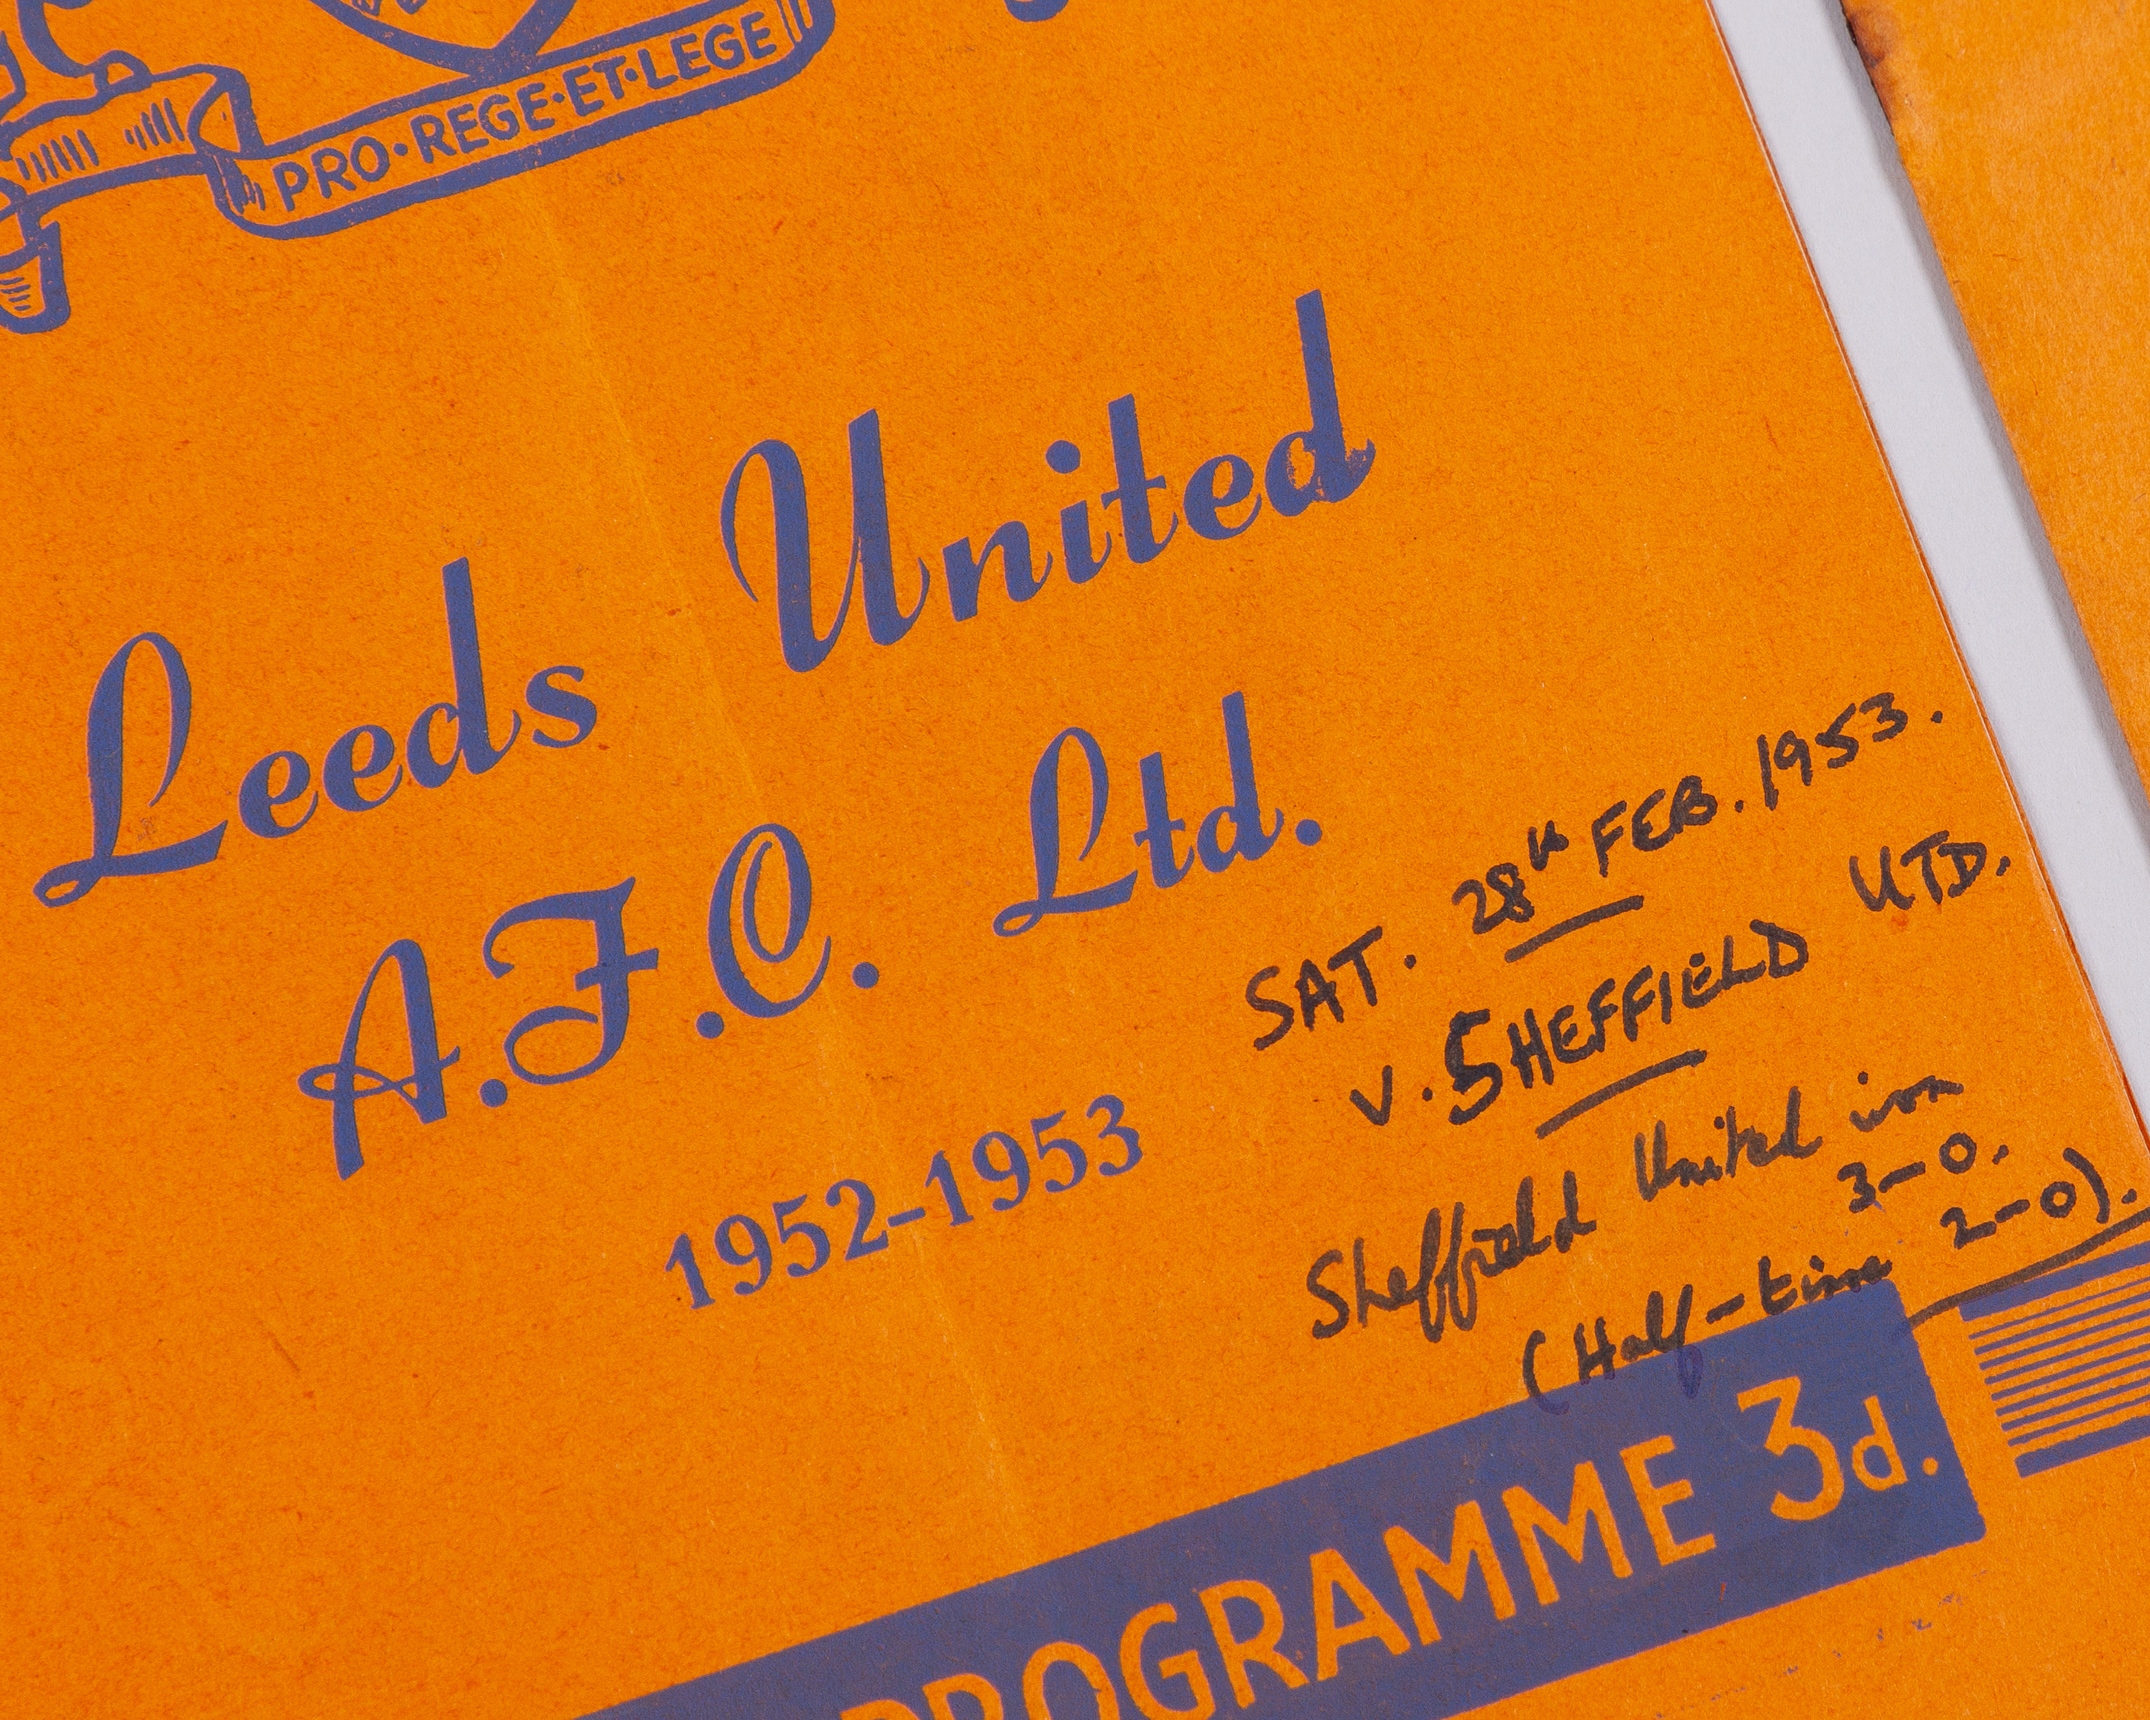 PRO·REGE·ET·LEGE
Leeds United
A.F.C. Ltd.
1952-1953
SAT. 28th FEB. 1953.
v. SHEFFIELD UTD.
Sheffield United won
3-0.
(Half-time 2-0).
PROGRAMME 3d.